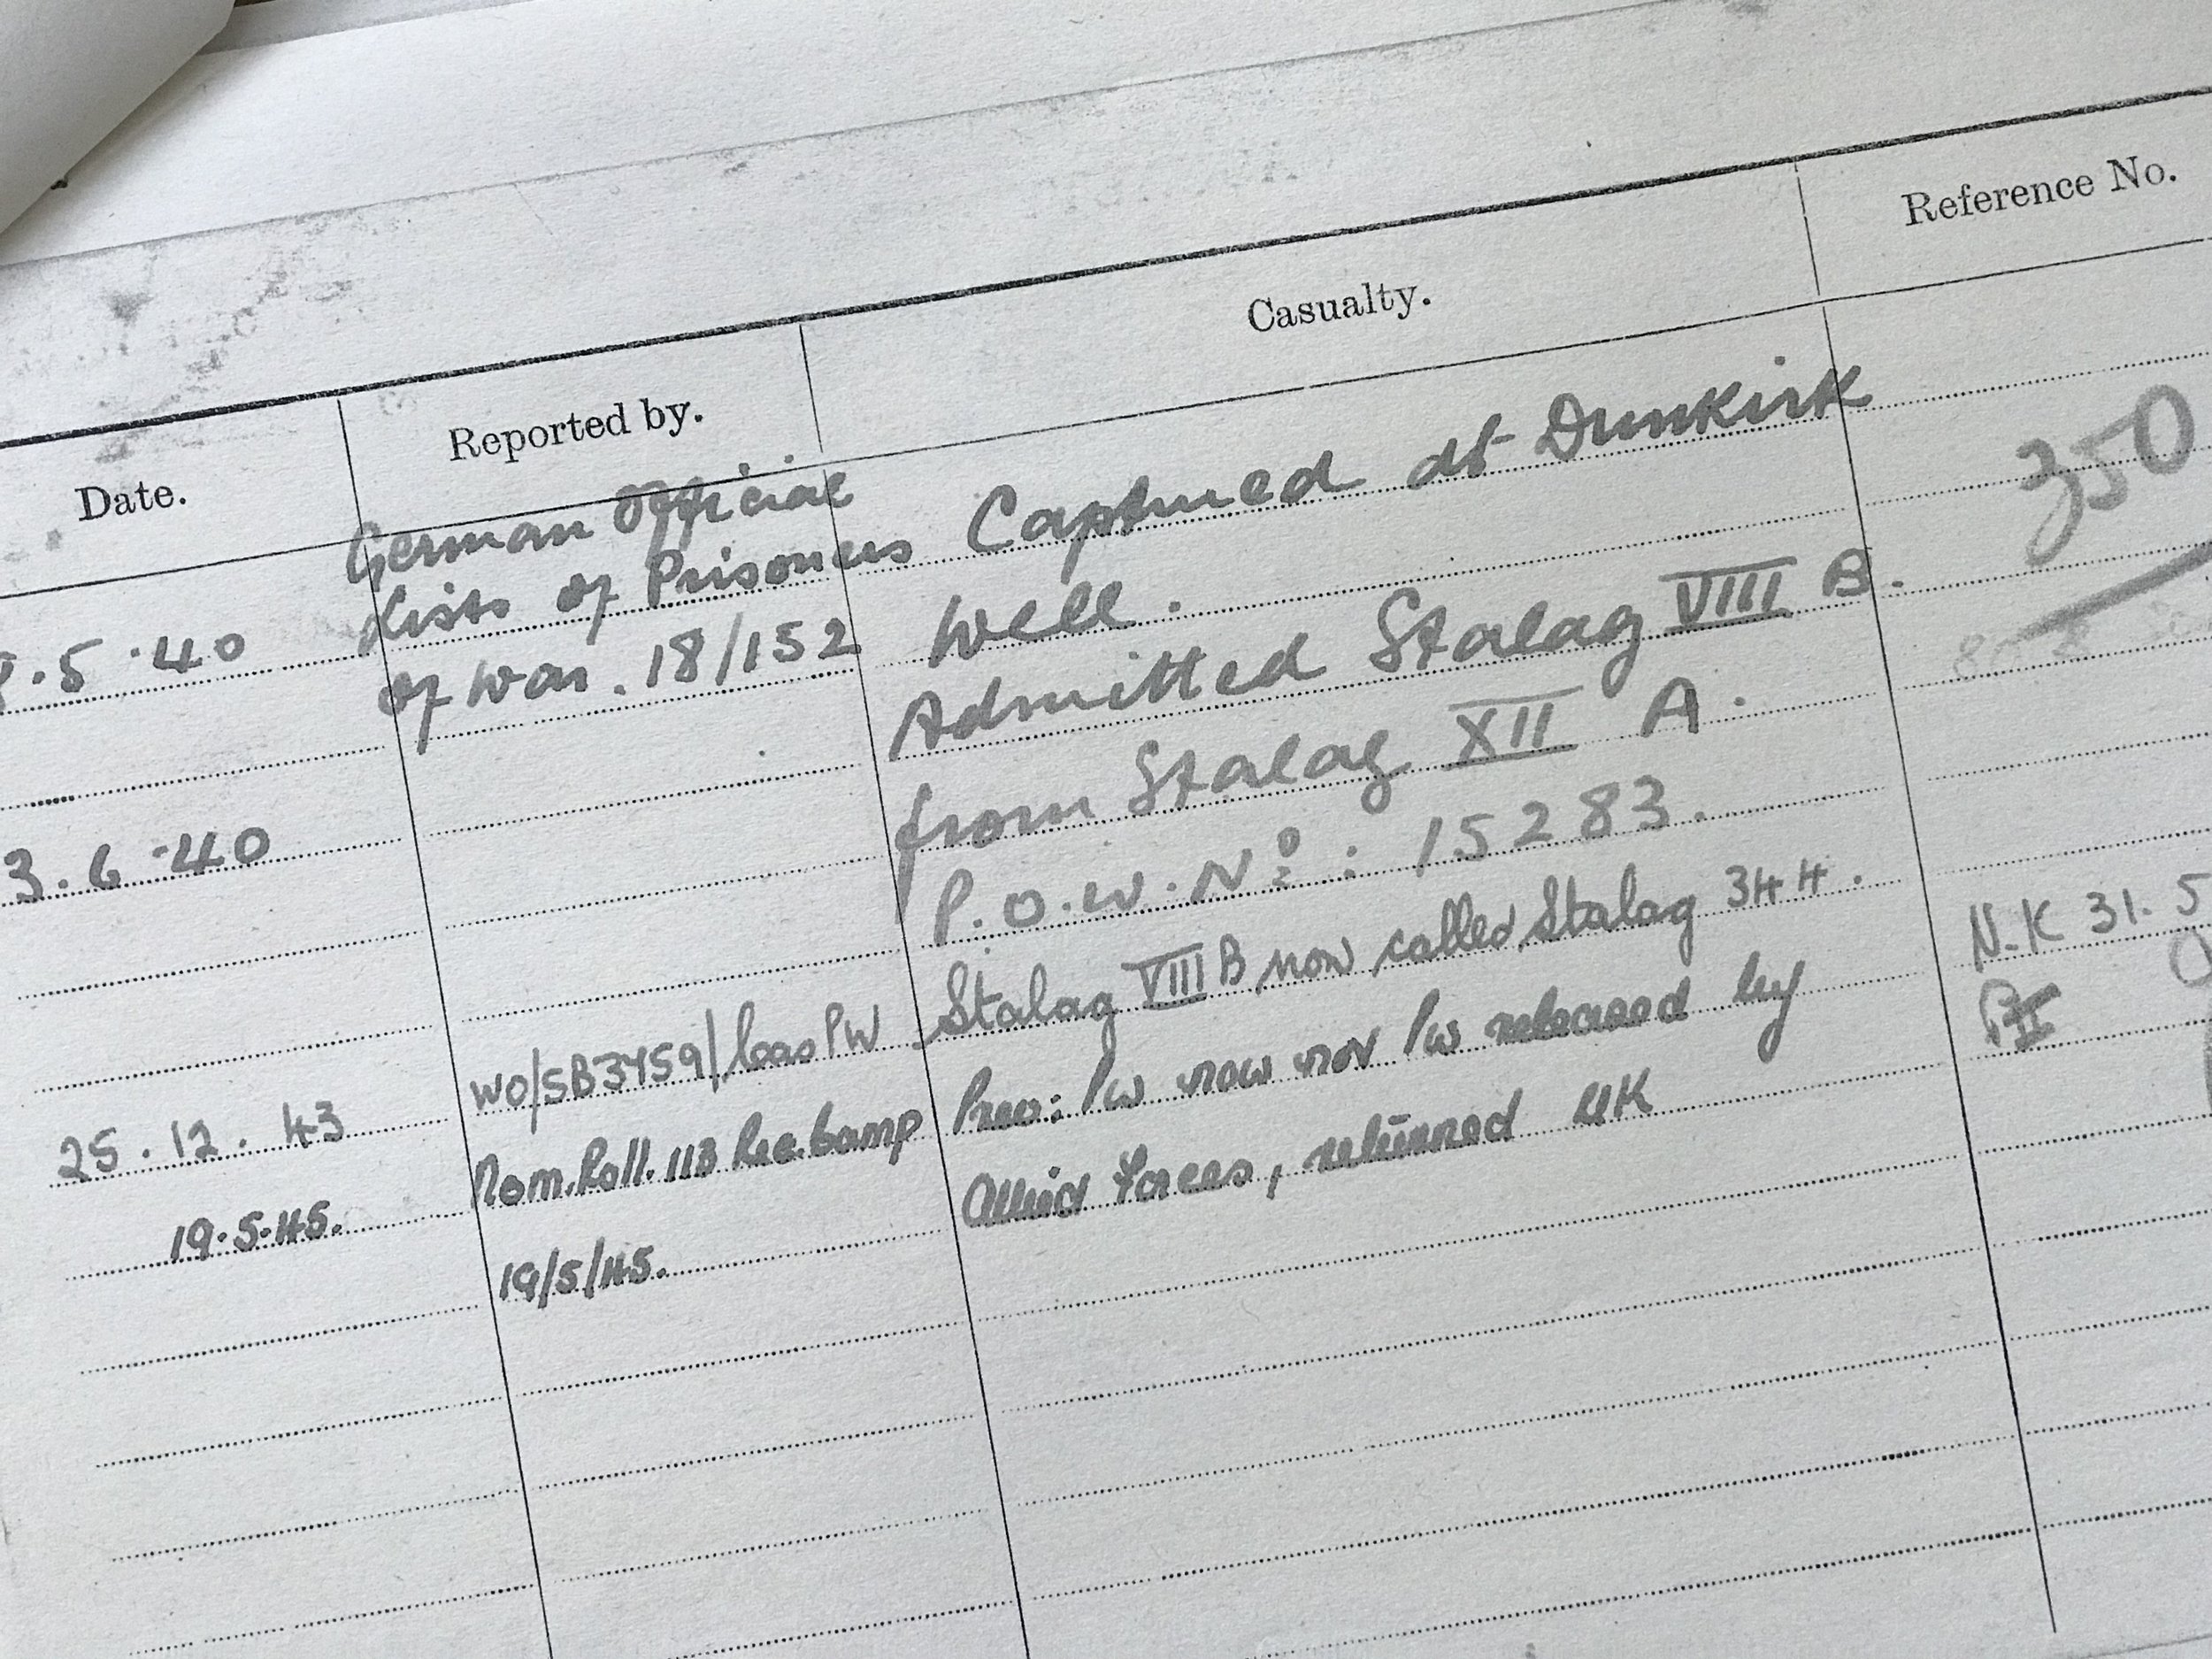 Date. Reported by. Casualty. Reference No.
German Official
.5.40 Lists of Prisoners Captured at Dunkirk 350
of War. 18/152 Well.
Admitted Stalag VIII B.
3.6.40 from Stalag XII A.
P.O.W. No: 15283.
25.12.43 WO/SB3459/Cas PW Stalag VIII B now called Stalag 344. N.K 31.5
19.5.45. Nom. Roll. 113 Rec. Camp Prev: Pw now not Pw released by PII
19/5/45. Allied Forces, returned UK